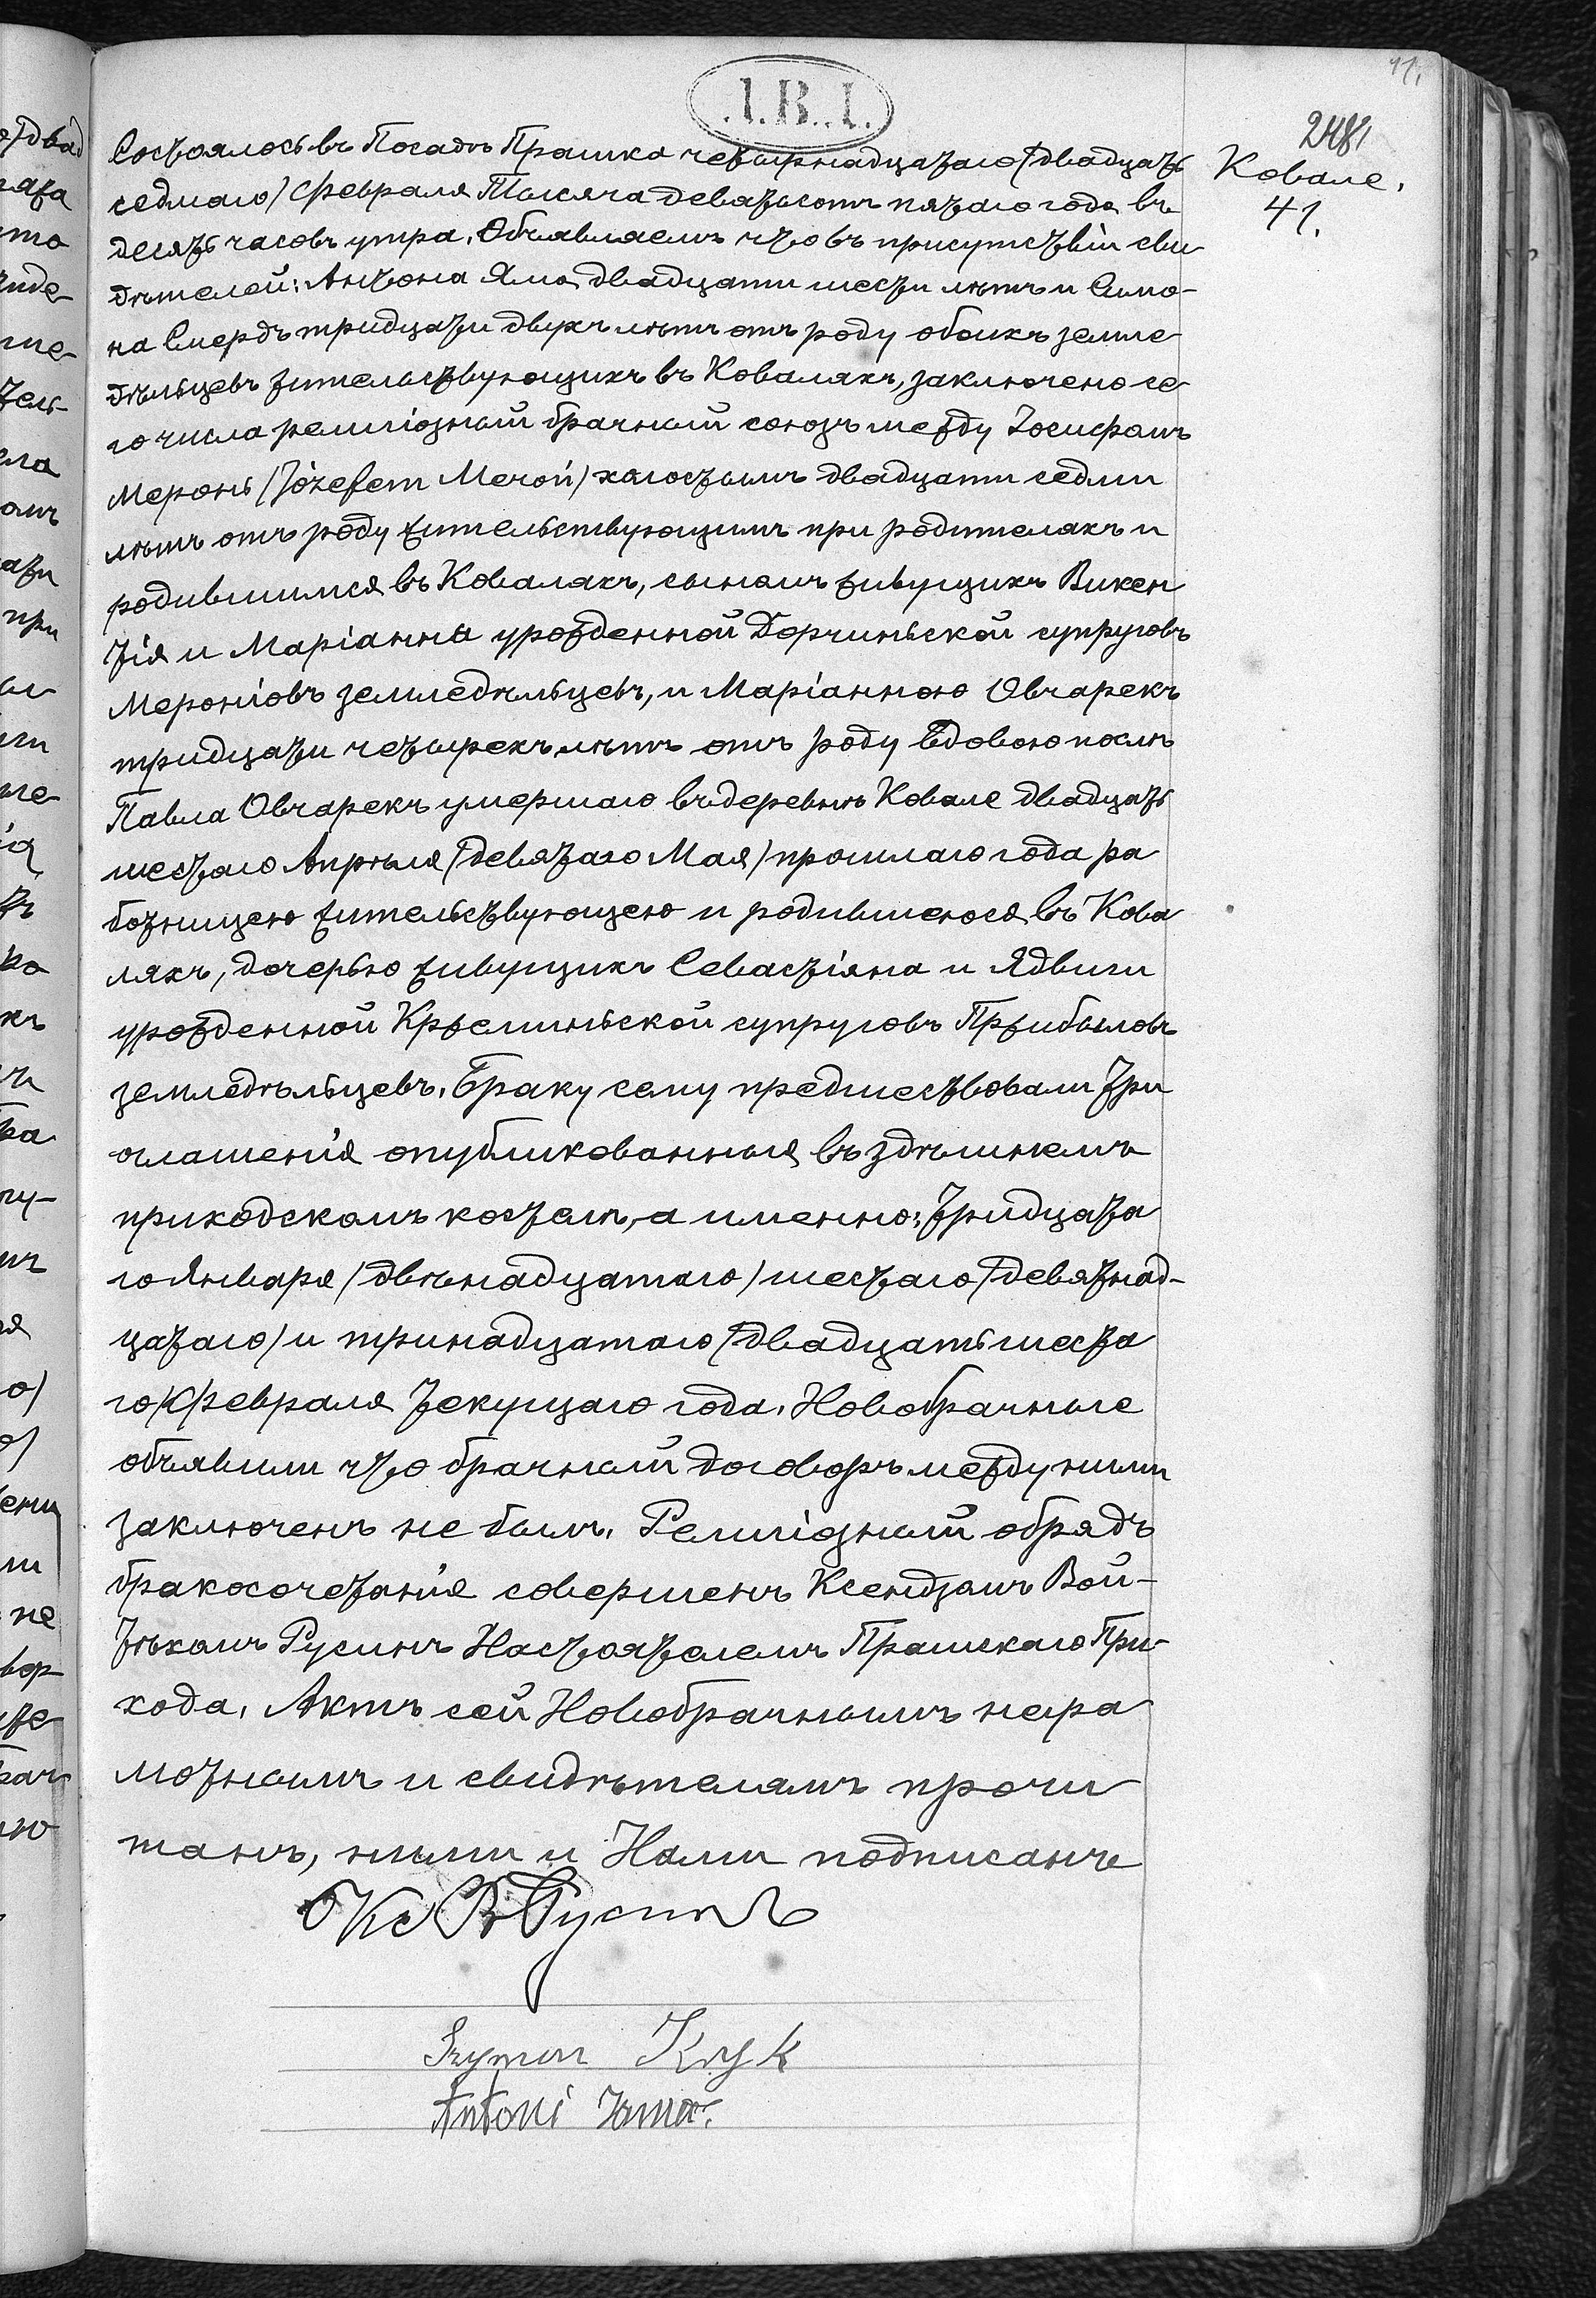 41.
.I.B.I.
2481
Ковале.
41.
Состоялось въ Посадѣ Прашка четырнадцатаго /двадцать
седмаго/ Февраля Тысяча девятьсотъ пятаго года въ
десять часовъ утра. Объявляемъ что въ присутствіи сви
дѣтелей: Антона Яма двадцати шести лѣтъ и Симо-
на Смердъ тридцати двухъ лѣтъ отъ роду обоихъ земле
дѣльцевъ жительствующихъ въ Коваляхъ, заключено се
го числа религіозный брачный союзъ между Іосифомъ
Меронь /Józefem Meroń/ холостымъ двадцати седми
лѣтъ отъ роду жительствующимъ при родителяхъ и
родившимся въ Коваляхъ, сыномъ живущихъ Викен
тія и Маріанны урожденной Дорчиньской супруговъ
Мероніовъ земледѣльцевъ, и Маріанною Овчарекъ
тридцати четырехъ лѣтъ отъ роду вдовою послѣ
Павла Овчарекъ умершаго въ деревнѣ Ковале двадцать
шестаго Апрѣля /девятаго Мая/ прошлаго года ра
ботницею жительствующею и родившеюся въ Кова
ляхъ, дочерью живущихъ Севастіяна и Ядвиги
урожденной Кржеминьской супруговъ Пржибыловъ
земледѣльцевъ. Браку сему предшествовали три
оглашенія опубликованныя въ здѣшнемъ
приходскомъ костелѣ, а именно: тридцата
го Января /двѣнадцатаго/ шестаго /девятнад-
цатаго/ и тринадцатаго /двадцать шеста
го/ Февраля текущаго года. Новобрачные
объявили что брачный договоръ между ними
заключенъ не былъ. Религіозный обрядъ
бракосочетанія совершенъ Ксендзомъ Вой-
тѣхомъ Русинъ Настоятелемъ Прашскаго При-
хода. Актъ сей Новобрачнымъ негра
мотнымъ и свидѣтелямъ прочи
танъ, ними и Нами подписанъ
Кс В Русинъ
Szymon
Antoni Jama.